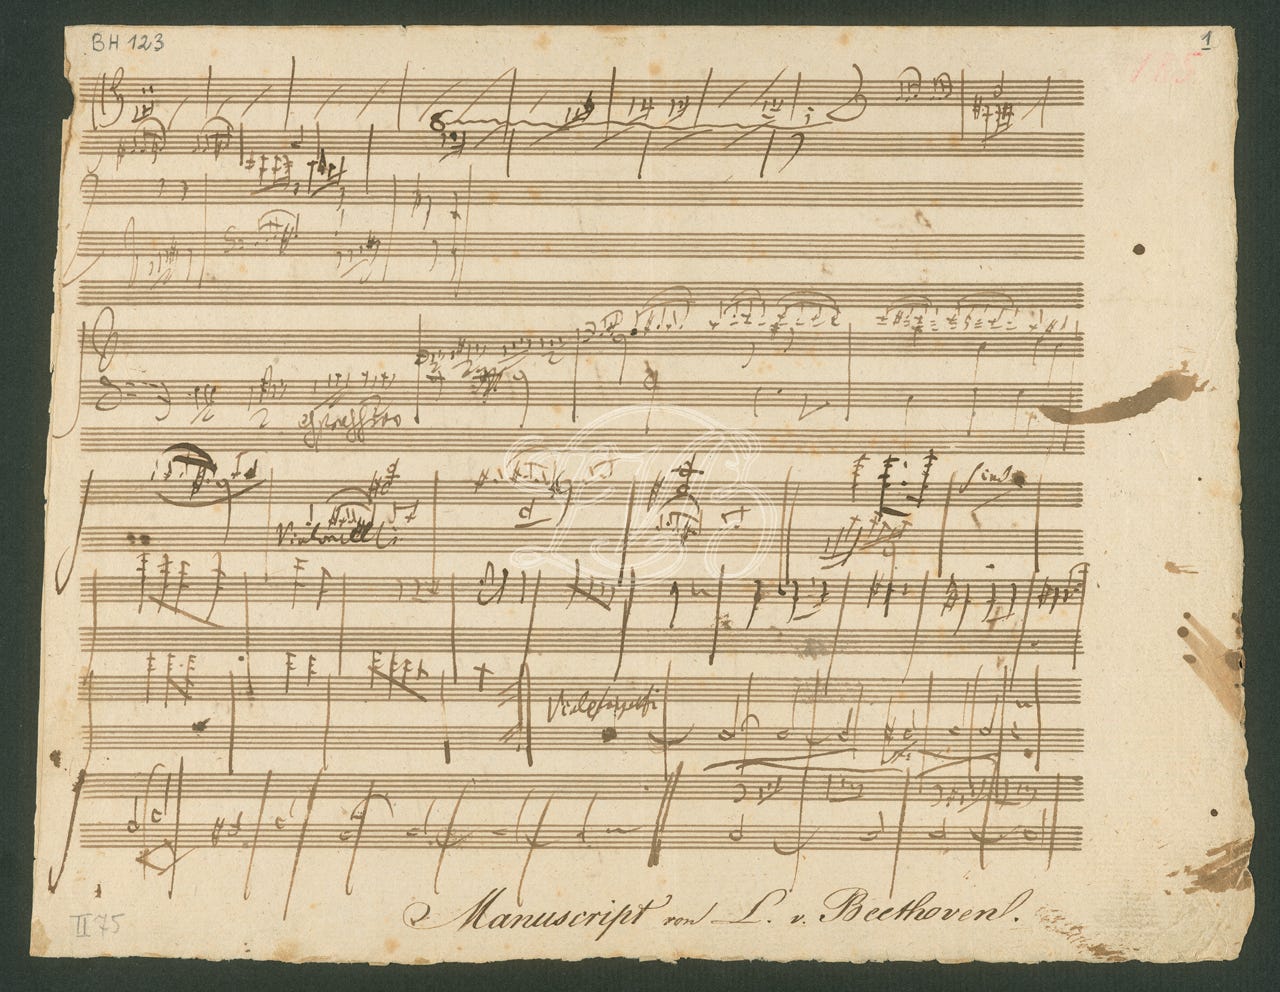 BH 123
1
185
espressivo
Violoncelli
II 75
Manuscript von L. v. Beethoven.